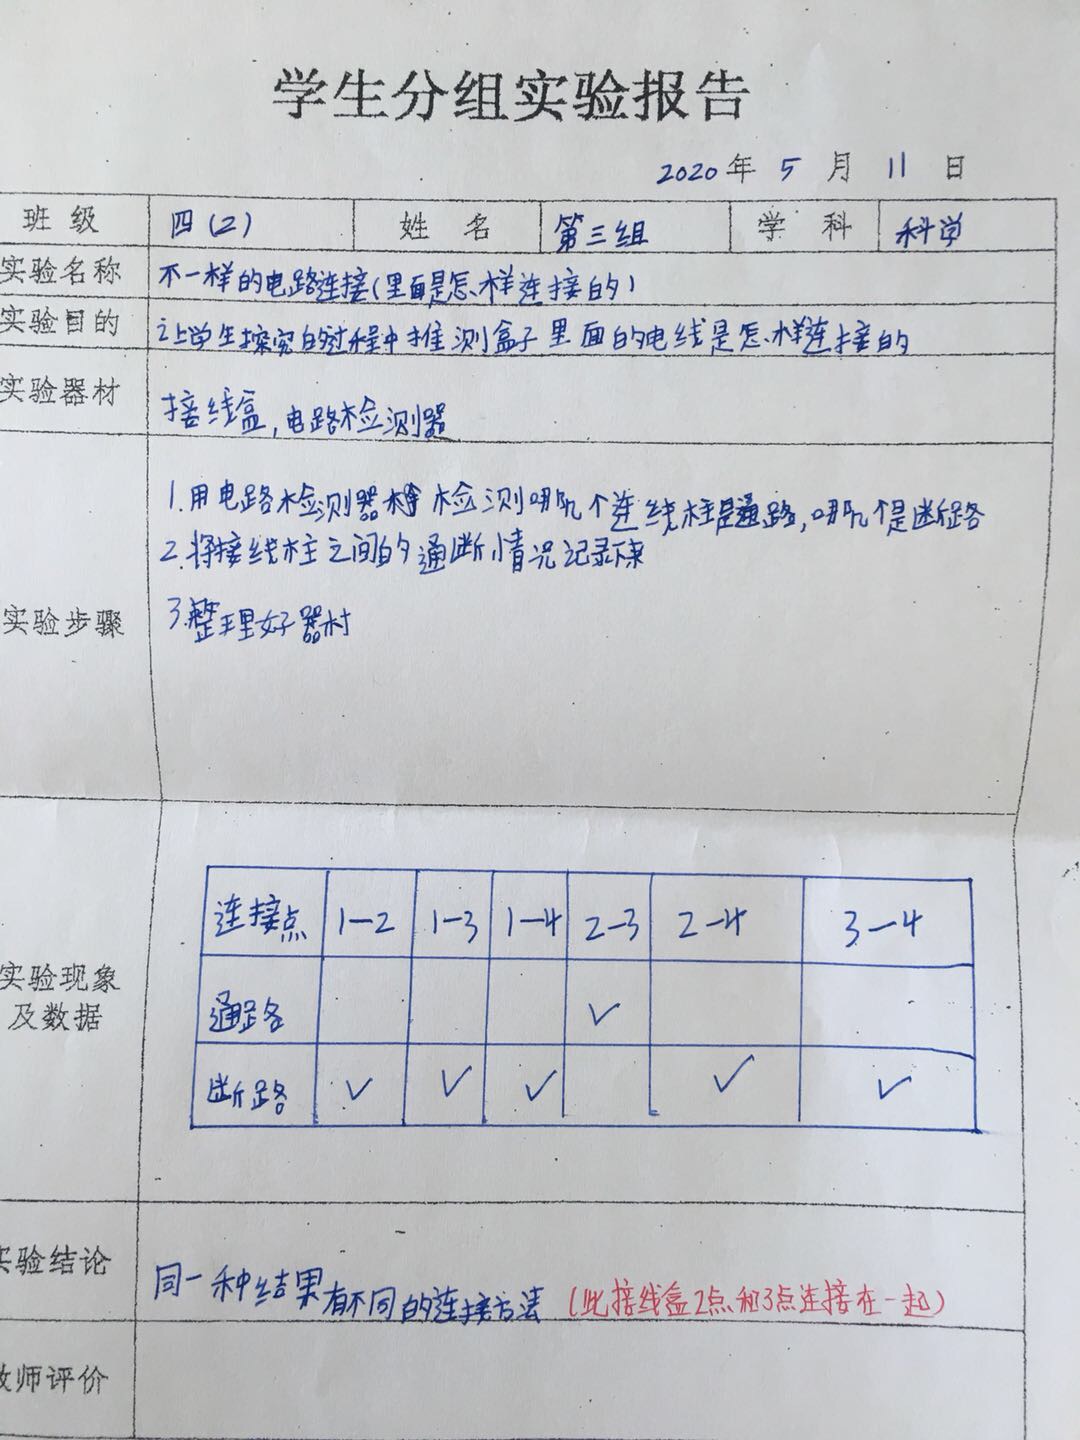 学生分组实验报告
2020年 5 月 11 日
班 级 四(2) 姓 名 第三组 学 科 科学
实验名称 不一样的电路连接(里面是怎样连接的)
实验目的 让学生探究的过程中推测盒子里面的电线是怎样连接的
实验器材 接线盒,电路检测器
1.用电路检测器 检测哪几个连线柱是通路,哪几个是断路
2.将接线柱之间的通断情况记录下来
实验步骤
3.整理好器材
连接点 1-2 1-3 1-4 2-3 2-4 3-4
实验现象
及数据
通路 ✓
断路 ✓ ✓ ✓ ✓ ✓
实验结论 同一种结果有不同的连接方法 (此接线盒2点和3点连接在一起)
教师评价